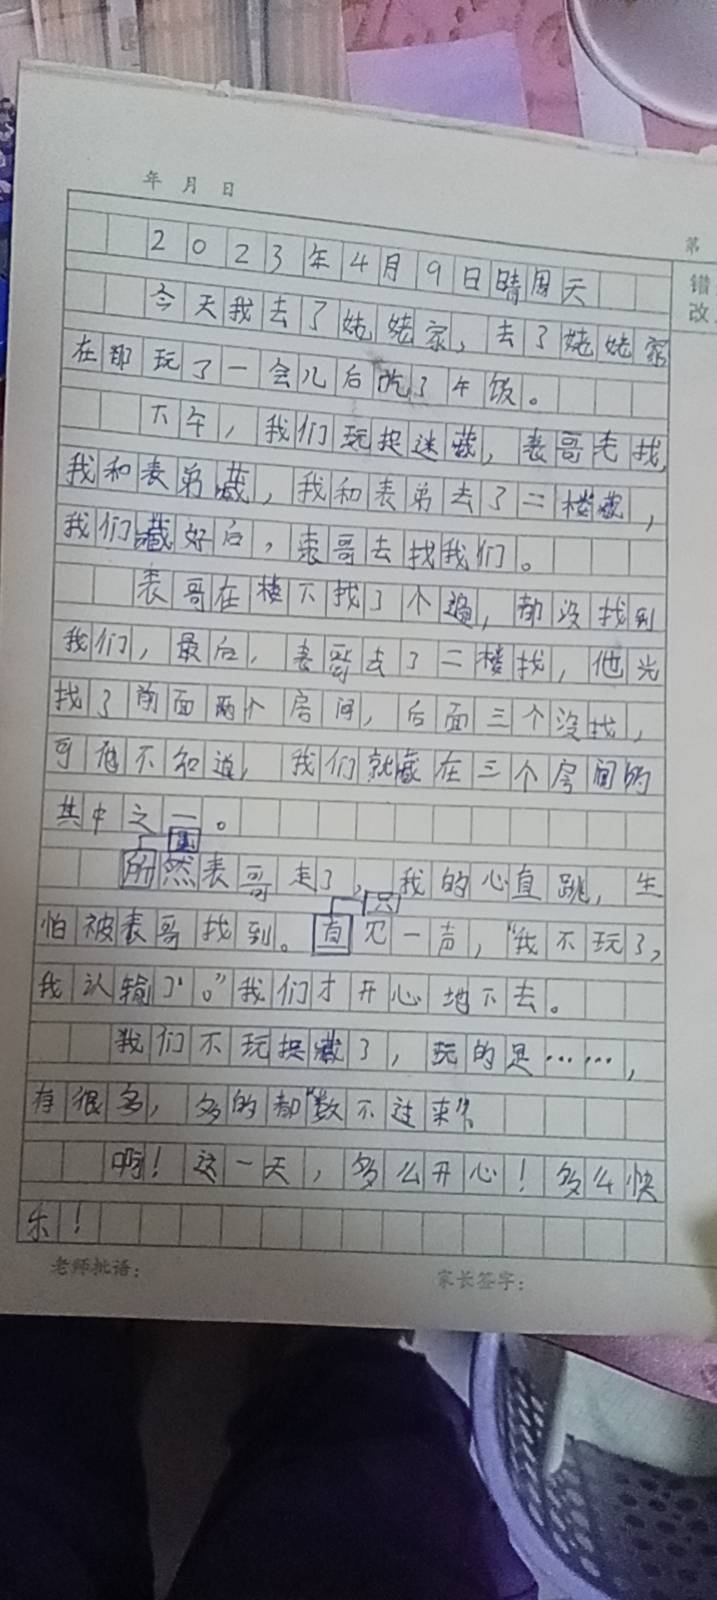 年 月 日
第
错
改
2023年4月9日晴周天
今天我去了姥姥家，去了姥姥家
在那玩了一会儿后吃了午饭。
下午，我们玩捉迷藏，表哥先找，
我和表弟藏，我和表弟去了二楼藏，
我们藏好后，表哥去找我们。
表哥在楼下找了个遍，都没找到
我们，最后，表哥去了二楼找，他光
找了前面两个房间，后面三个没找，
可他不知道，我们就藏在三个房间的
其中之一。
虽
所然表哥走了，我的心直跳，生
只
怕被表哥找到。百咒一声，“我不玩了，
我认输了。”我们才开心地下去。
我们不玩捉藏了，玩的是……，
有很多，多的都“数不过来”。
啊！这一天，多么开心！多么快
乐！
老师批语：
家长签字：